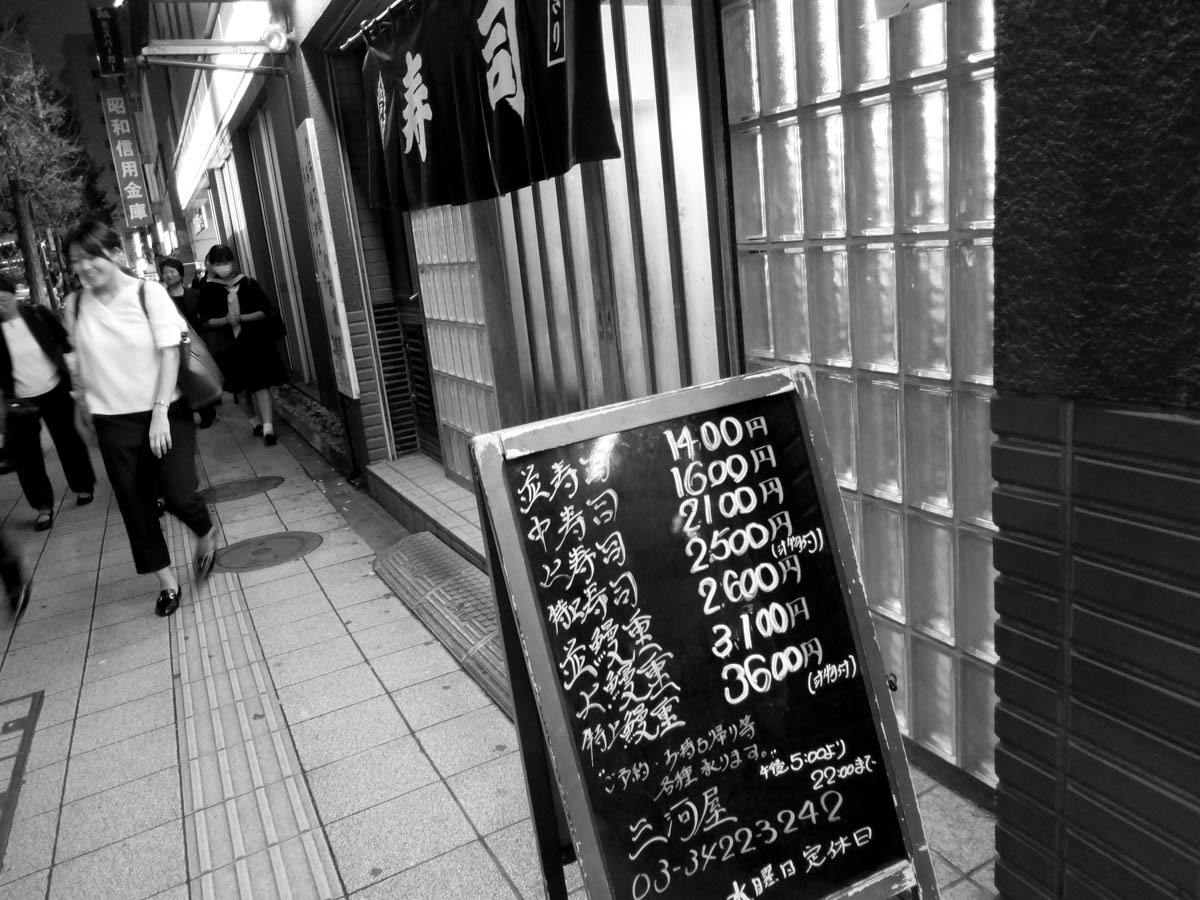 昭和信用金庫
寿司
並寿司 1400円
中寿司 1600円
上寿司 2100円
特上寿司 2500円(汁物付)
並鰻重 2600円
上鰻重 3,100円
特上鰻重 3600円(汁物付)
"ご予約・お持ち帰り等
各種承ります。"
午後5:00より
22:00まで
三河屋
03-3422-3242
水曜日定休日